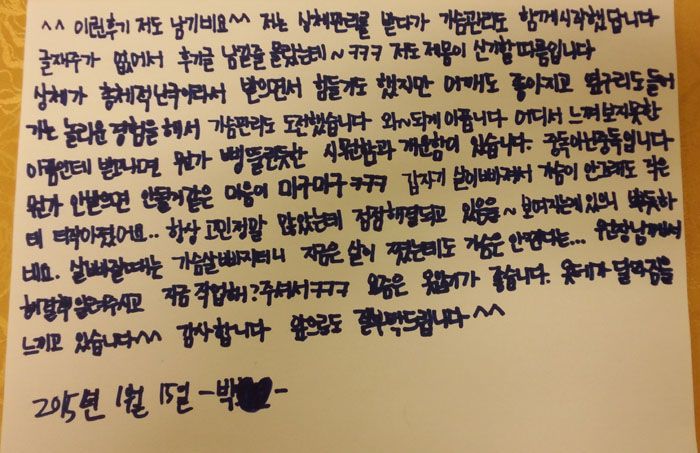 ^^ 이런후기 저도 남기네요^^ 저는 상체관리를 받다가 가슴관리도 함께시작했답니다
글재주가 없어서 후기글 남길줄 몰랐는데~ㅋㅋㅋ 저도 제몸이 신기할따름입니다
상체가 총체적난국이라서 받으면서 힘들기도 했지만 어깨도 좋아지고 옆구리도들어
가는 놀라운 경험을 해서 가슴관리도 도전했습니다 와~되게 아픕니다 어디서 느껴보지못한
아픔인데 받고나면 뭔가 뻥뚫린듯한 시원함과 개운함이 있습니다. 중독아닌중독입니다
뭔가 안받으면 안될거같은 마음이 마구마구ㅋㅋㅋ 갑자기 살이빠져서 가슴이 안그래도 작은
데 더작아졌어요.. 항상 고민정말 많았는데 점점해결되고 있음을~ 보여지는게있으니 뿌듯하
네요. 살빠질때는 가슴살빠지더니 지금은 살이 쪘는데도 가슴은 안찐다는... 원장님께서
해결책알려주시고 지금 작업해?주셔서ㅋㅋㅋ 요즘은 옷입기가 좋습니다. 옷테가 달라짐을
느끼고 있습니다^^ 감사합니다 앞으로도 잘부탁드립니다^^
2015년 1월 15일 -박 -